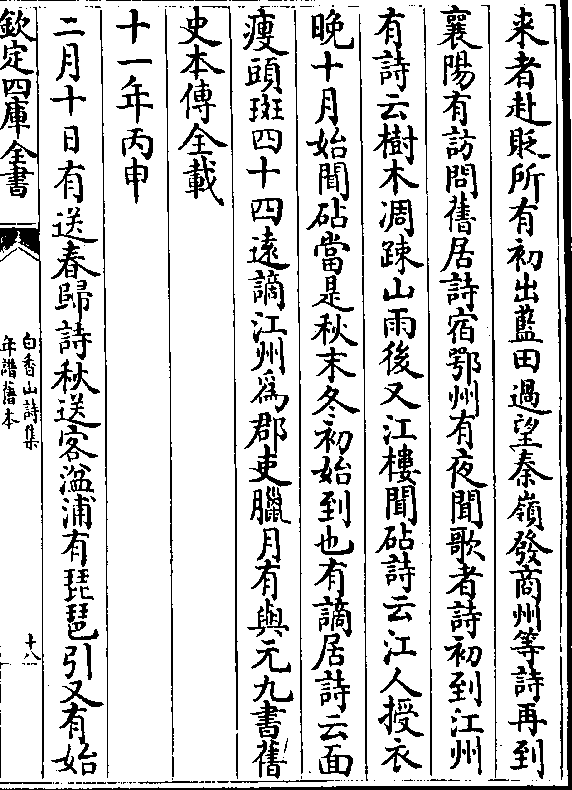 来者赴貶所有初出藍田過望秦嶺發商州等詩再到
襄陽有訪問舊居詩宿鄂州有夜聞歌者詩初到江州
有詩云樹木凋疎山雨後又江樓聞砧詩云江人授衣
晚十月始聞砧當是秋末冬初始到也有謫居詩云面
瘦頭斑四十四逺謫江州爲郡吏臘月有與元九書舊
史本傳全載
十一年丙申
二月十日有送春歸詩秋送客湓浦有琵琶引又有始
欽定四庫全書
白香山詩集
年譜舊本
十八